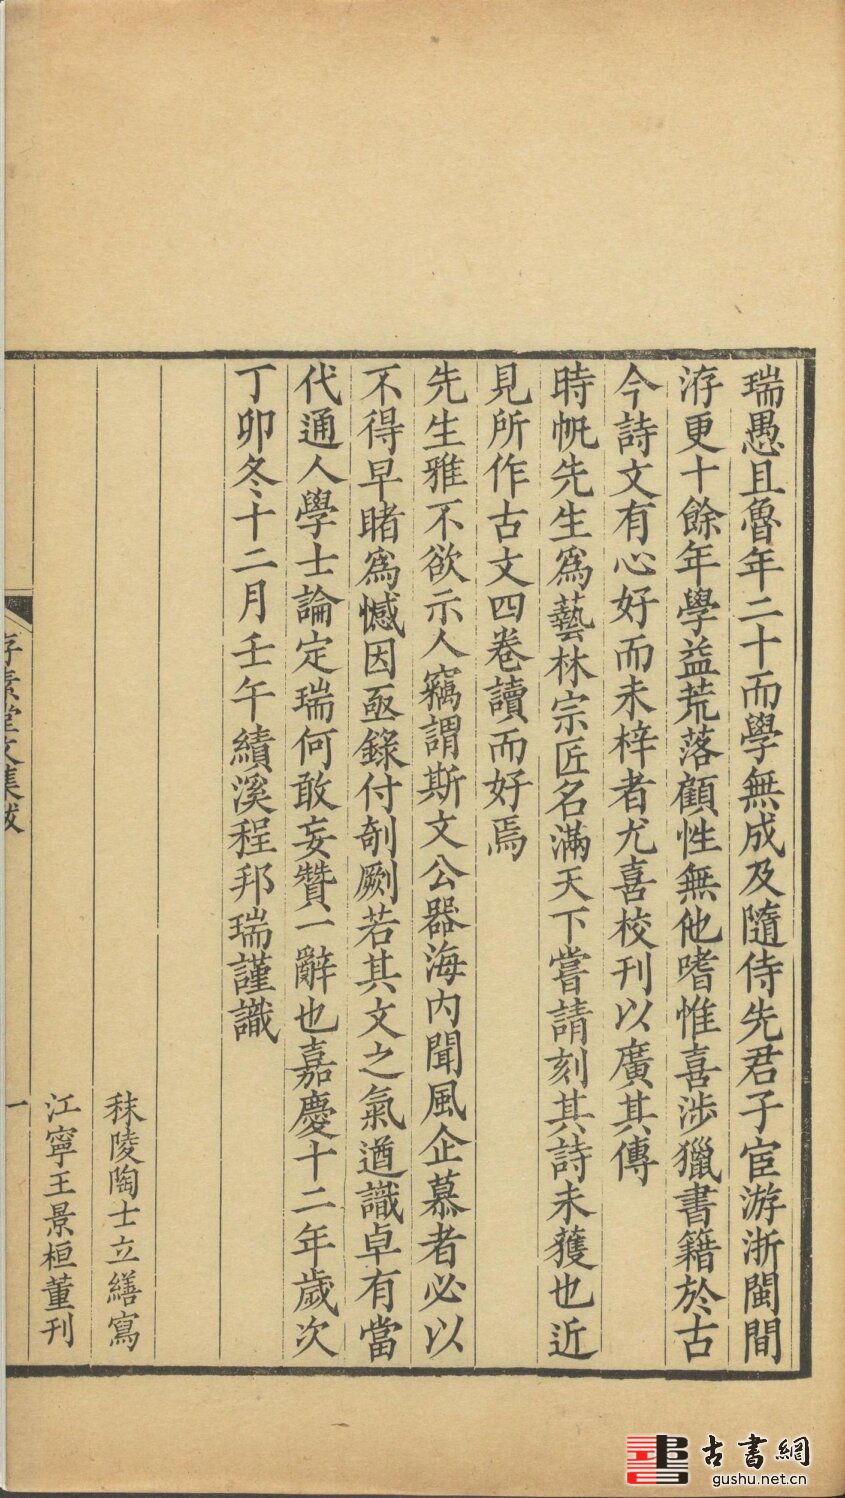 瑞愚且魯年二十而學無成及隨侍先君子宦游浙閩間
洊更十餘年學益荒落顧性無他嗜惟喜涉獵書籍於古
今詩文有心好而未梓者尤喜校刊以廣其傳
時帆先生爲藝林宗匠名滿天下嘗請刻其詩未獲也近
見所作古文四卷讀而好焉
先生雅不欲示人竊謂斯文公器海内聞風企慕者必以
不得早睹爲憾因亟錄付剞劂若其文之氣遒識卓有當
代通人學士論定瑞何敢妄贊一辭也嘉慶十二年歲次
丁卯冬十二月壬午績溪程邦瑞謹識
秣陵陶士立繕寫
江寧王景桓董刊
存素堂文集跋
一
古書網
gushu.net.cn